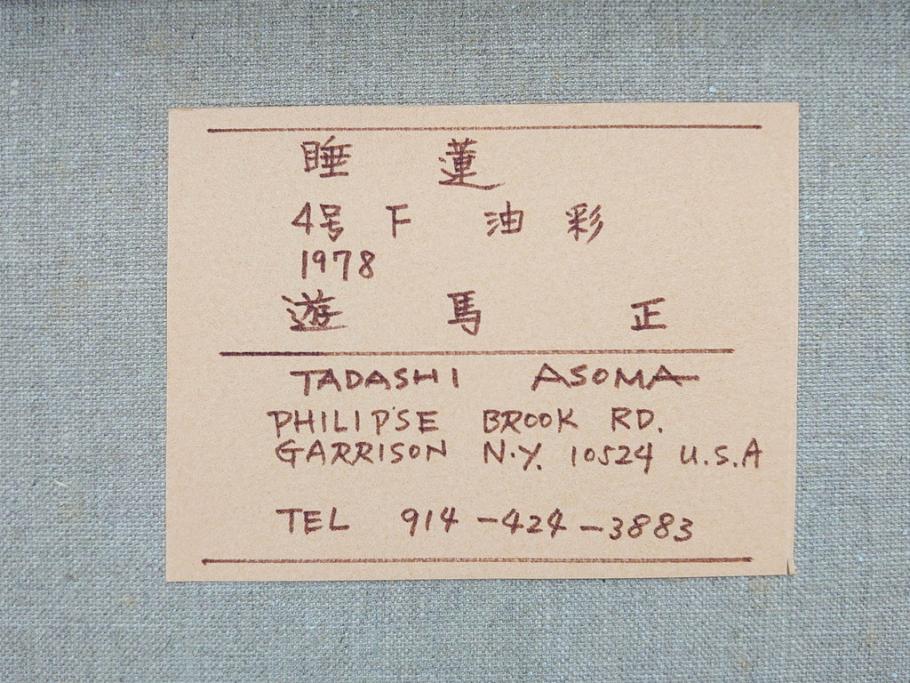 睡 蓮
4号 F 油 彩
1978
遊 馬 正
TADASHI ASOMA
PHILIPSE BROOK RD.
GARRISON N.Y. 10524 U.S.A
TEL 914-424-3883